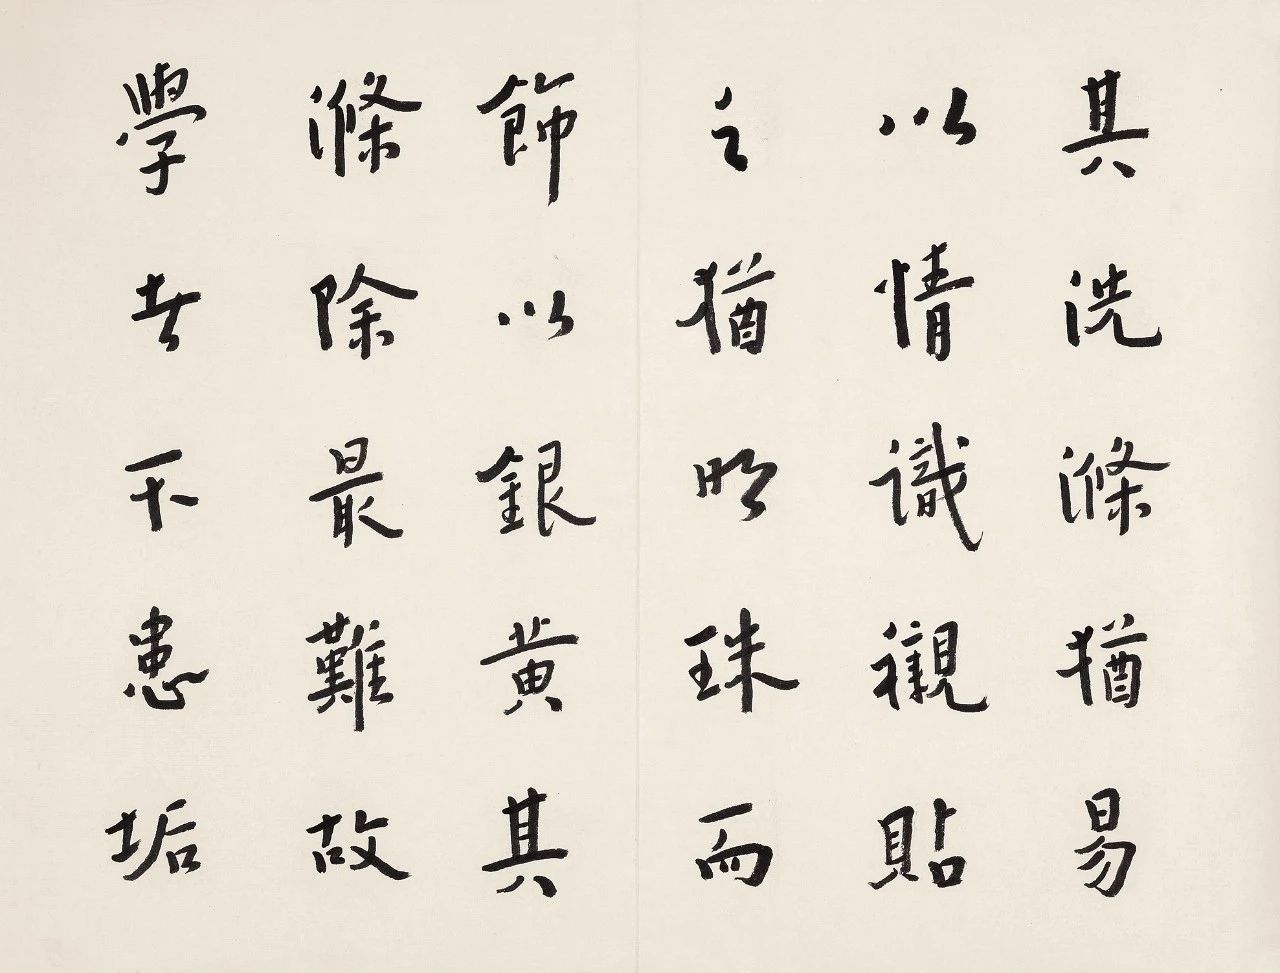 其洗滌猶易
以情識襯貼
之猶明珠而
飾以銀黃其
滌除最難故
學者不患垢